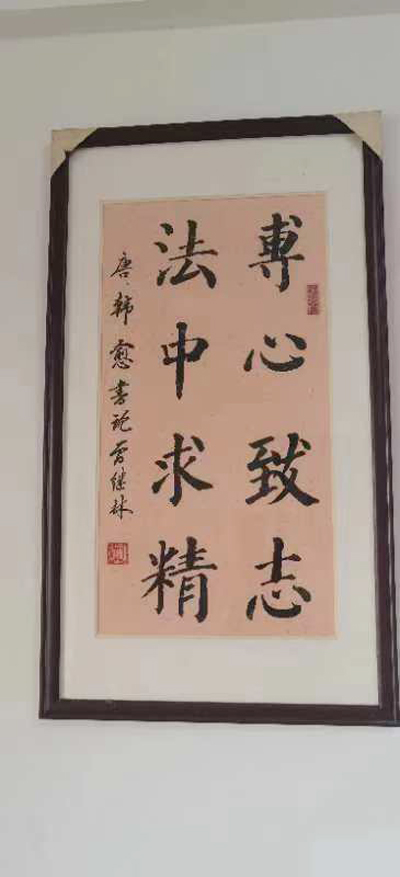 專心致志
法中求精
唐、韩愈书论曾继林